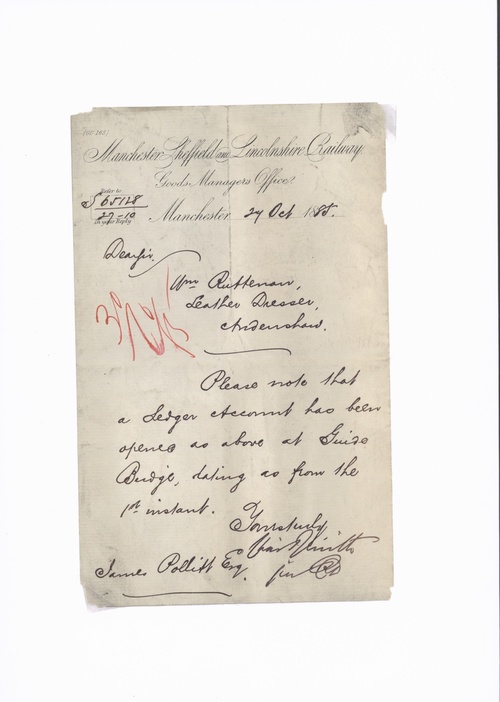 Manchester Sheffield and Lincolnshire Railway
Goods Managers Office.
Refer to
S 65128
27-10
in your Reply
Manchester 27 Oct 1885.
Dear Sir.
Wm
Leather Dresser,
Audenshaw.
Please note that
a Ledger Account has been
opened as above at Guide
Bridge, dating as from the
1st instant.
Yours truly
James Pollitt Esq.